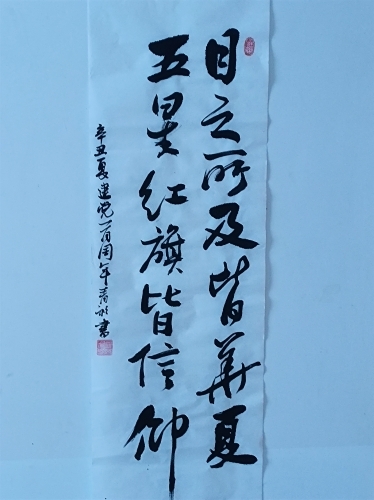 目之所及皆华夏
五星红旗皆信仰
辛丑夏建党一百周年
书